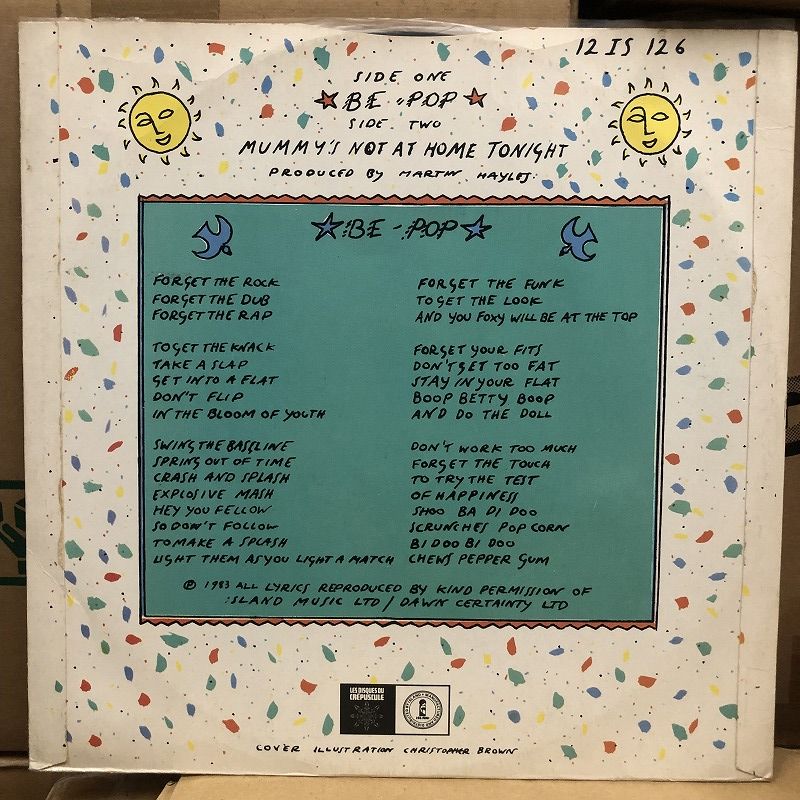 12 IS 126
SIDE ONE
BE-POP
SIDE TWO
MUMMY'S NOT AT HOME TONIGHT
PRODUCED BY MARTIN HAYLES.
BE-POP
FORGET THE ROCK
FORGET THE DUB
FORGET THE RAP
TO GET THE KNACK
TAKE A SLAP
GET INTO A FLAT
DON'T FLIP
IN THE BLOOM OF YOUTH
SWING THE BASELINE
SPRING OUT OF TIME
CRASH AND SPLASH
EXPLOSIVE MASH
HEY YOU FELLOW
SO DON'T FOLLOW
TO MAKE A SPLASH
LIGHT THEM AS YOU LIGHT A MATCH
FORGET THE FUNK
TO GET THE LOOK
AND YOU FOXY WILL BE AT THE TOP
FORGET YOUR FITS
DON'T GET TOO FAT
STAY IN YOUR FLAT
BOOP BETTY BOOP
AND DO THE DOLL
DON'T WORK TOO MUCH
FORGET THE TOUCH
TO TRY THE TEST
OF HAPPINESS
SHOO BA DI DOO
SCRUNCHES POP CORN
BI DOO BI DOO
CHEWS PEPPER GUM
℗ 1983 ALL LYRICS REPRODUCED BY KIND PERMISSION OF
ISLAND MUSIC LTD / DAWN CERTAINTY LTD
LES DISQUES DU
CRÉPUSCULE
COVER ILLUSTRATION CHRISTOPHER BROWN